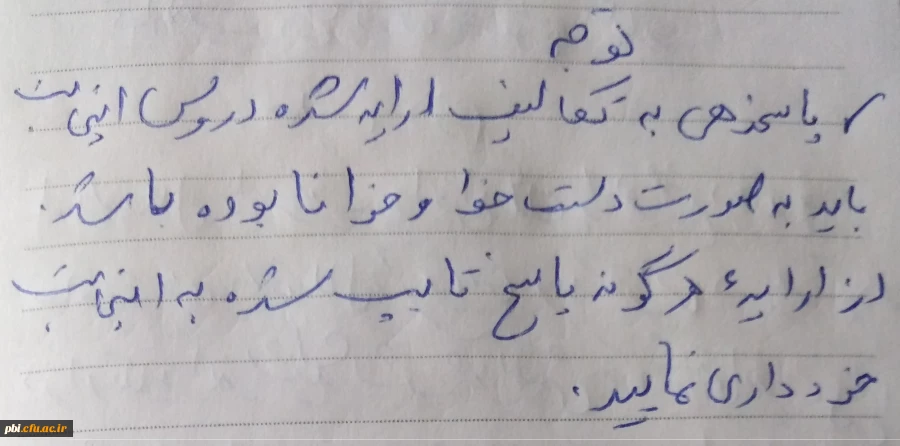 توجه
✓ پاسخدهی به تکالیف ارایه شده دروس اینجانب
باید به صورت دست خط و خوانا بوده باشد.
از ارایهٔ هرگونه پاسخ تایپ شده به اینجانب
خودداری نمایید.
pbi.cfu.ac.ir